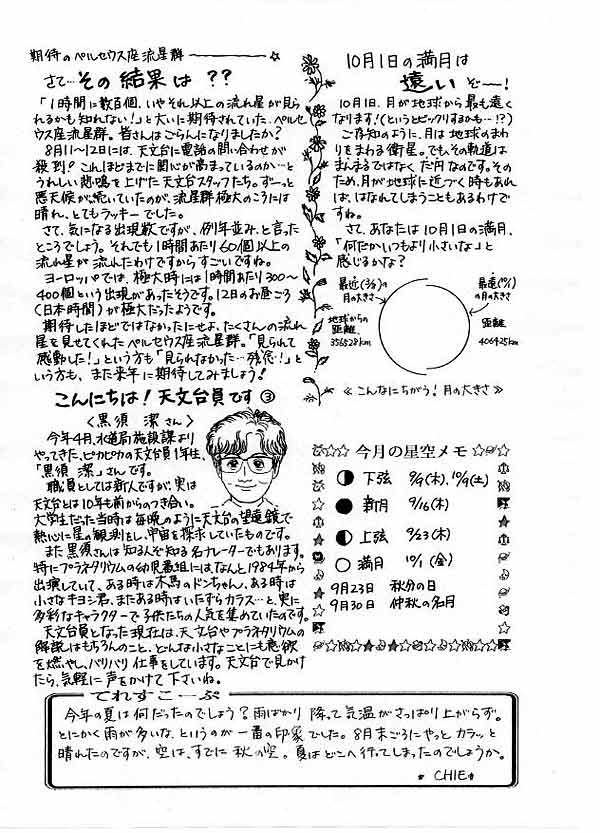 期待のペルセウス座流星群
さて…その結果は??
「1時間に数百個、いやそれ以上の流れ星が見ら
れるかも知れない!」と大いに期待されていた、ペルセ
ウス座流星群。皆さんはごらんになりましたか?
8月11〜12日には、天文台に電話の問い合わせが
殺到?これほどまでに関心が高まっているのか…と
うれしい悲鳴を上げた天文台スタッフたち。ずーっと
悪天候が続いていたのが、流星群極大のころには
晴れ、とてもラッキーでした。
さて、気になる出現数ですが、例年並み、と言った
ところでしょう。それでも1時間あたり60個以上の
流れ星が流れたわけですからすごいですね。
ヨーロッパでは、極大時には1時間あたり300〜
400個という出現があったそうです。12日のお昼ごろ
(日本時間)が極大だったようです。
期待したほどではなかったにせよ、たくさんの流れ
星を見せてくれたペルセウス座流星群。「見られて
感動した!」という方も「見られなかった…残念!」と
いう方も、また来年に期待してみましょう!
こんにちは!天文台員です③
〈黒須 潔さん〉
今年4月、水道局施設課より
やってきた、ピカピカの天文台員1年生、
「黒須 潔」さんです。
職員としては新人ですが、実は
天文台とは10年も前からのつき合い。
大学生だった当時は毎晩のように天文台の望遠鏡で
熱心に星の観測をし、宇宙を探求していたものです。
また黒須さんは知る人ぞ知る名ナレーターでもあります。
特にプラネタリウムの幼児番組には、なんと1984年から
出演していて、ある時は木馬のドンちゃん、ある時は
小さなキヨシ君、またある時はいたずらカラス…と、実に
多彩なキャラクターで子供たちの人気を集めていたのです。
天文台員となった現在は、天文台やプラネタリウムの
解説はもちろんのこと、どんな小さなことにも意欲
を燃やし、バリバリ仕事をしています。天文台で見かけ
たら、気軽に声をかけて下さいね。
10月1日の満月は
遠いぞ〜!
10月1日、月が地球から最も遠く
なります!(というとビックリするかも…!?)
ご存知のように、月は地球のまわ
りをまわる衛星。でも、その軌道は
まんまるではなくだ円なのです。その
ため、月が地球に近づく時もあれ
ば、はなれてしまうこともあるわけで
すね。
さて、あなたは10月1日の満月、
「何だかいつもより小さいな」と
感じるかな?
最近(3/8)の
月の大きさ
最遠(10/1)
の月の大きさ
地球からの
距離
356528km
距離
406425km
≪こんなにちがう!月の大きさ≫
今月の星空メモ
下弦 9/9(木)、10/9(土)
新月 9/16(木)
上弦 9/23(木)
満月 10/1(金)
9月23日 秋分の日
9月30日 仲秋の名月
てれすこーぷ
今年の夏は何だったのでしょう?雨ばかり降って気温がさっぱり上がらず。
とにかく雨が多いな、というのが一番の印象でした。8月末ごろにやっとカラッと
晴れたのですが、空は、すでに秋の空。夏はどこへ行ってしまったのでしょうか。
CHIE